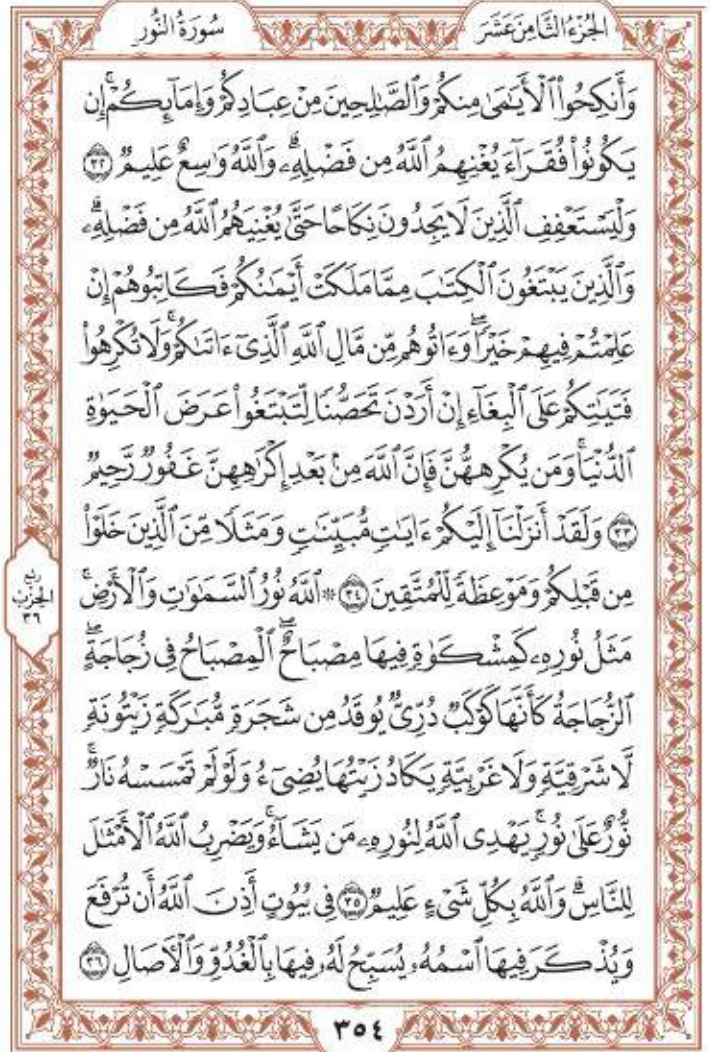 الجُزْءُ الثَّامِنَ عَشَرَ
سُورَةُ النُّور
وَأَنكِحُوا۟ ٱلْأَيَٰمَىٰ مِنكُمْ وَٱلصَّٰلِحِينَ مِنْ عِبَادِكُمْ وَإِمَآئِكُمْ ۚ إِن
يَكُونُوا۟ فُقَرَآءَ يُغْنِهِمُ ٱللَّهُ مِن فَضْلِهِۦ ۗ وَٱللَّهُ وَٰسِعٌ عَلِيمٌ ٣٢
وَلْيَسْتَعْفِفِ ٱلَّذِينَ لَا يَجِدُونَ نِكَاحًا حَتَّىٰ يُغْنِيَهُمُ ٱللَّهُ مِن فَضْلِهِۦ ۗ
وَٱلَّذِينَ يَبْتَغُونَ ٱلْكِتَٰبَ مِمَّا مَلَكَتْ أَيْمَٰنُكُمْ فَكَاتِبُوهُمْ إِنْ
عَلِمْتُمْ فِيهِمْ خَيْرًا ۖ وَءَاتُوهُم مِّن مَّالِ ٱللَّهِ ٱلَّذِىٓ ءَاتَىٰكُمْ ۚ وَلَا تُكْرِهُوا۟
فَتَيَٰتِكُمْ عَلَى ٱلْبِغَآءِ إِنْ أَرَدْنَ تَحَصُّنًا لِّتَبْتَغُوا۟ عَرَضَ ٱلْحَيَوٰةِ
ٱلدُّنْيَا ۚ وَمَن يُكْرِههُّنَّ فَإِنَّ ٱللَّهَ مِنۢ بَعْدِ إِكْرَٰهِهِنَّ غَفُورٌ رَّحِيمٌ
٣٣ وَلَقَدْ أَنزَلْنَآ إِلَيْكُمْ ءَايَٰتٍ مُّبَيِّنَٰتٍ وَمَثَلًا مِّنَ ٱلَّذِينَ خَلَوْا۟
مِن قَبْلِكُمْ وَمَوْعِظَةً لِّلْمُتَّقِينَ ٣٤ ۞ ٱللَّهُ نُورُ ٱلسَّمَٰوَٰتِ وَٱلْأَرْضِ ۚ
مَثَلُ نُورِهِۦ كَمِشْكَوٰةٍ فِيهَا مِصْبَاحٌ ۖ ٱلْمِصْبَاحُ فِى زُجَاجَةٍ ۖ
ٱلزُّجَاجَةُ كَأَنَّهَا كَوْكَبٌ دُرِّىٌّ يُوقَدُ مِن شَجَرَةٍ مُّبَٰرَكَةٍ زَيْتُونَةٍ
لَّا شَرْقِيَّةٍ وَلَا غَرْبِيَّةٍ يَكَادُ زَيْتُهَا يُضِىٓءُ وَلَوْ لَمْ تَمْسَسْهُ نَارٌ ۚ
نُّورٌ عَلَىٰ نُورٍ ۗ يَهْدِى ٱللَّهُ لِنُورِهِۦ مَن يَشَآءُ ۚ وَيَضْرِبُ ٱللَّهُ ٱلْأَمْثَٰلَ
لِلنَّاسِ ۗ وَٱللَّهُ بِكُلِّ شَىْءٍ عَلِيمٌ ٣٥ فِى بُيُوتٍ أَذِنَ ٱللَّهُ أَن تُرْفَعَ
وَيُذْكَرَ فِيهَا ٱسْمُهُۥ يُسَبِّحُ لَهُۥ فِيهَا بِٱلْغُدُوِّ وَٱلْءَاصَالِ ٣٦
ربع
الحزب
٣٦
٣٥٤